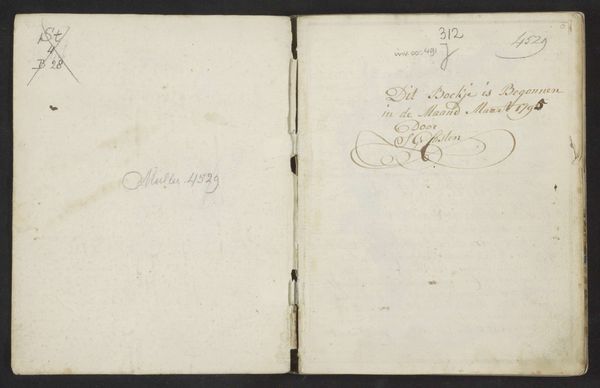 St
4
B 28
Muller. 4529
312
4529
Dit Boekje is Begonnen
in de Maand Maart 1795
Door